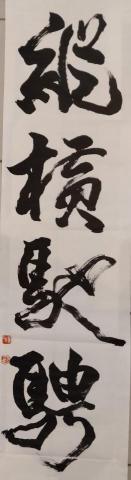 縱橫馳騁